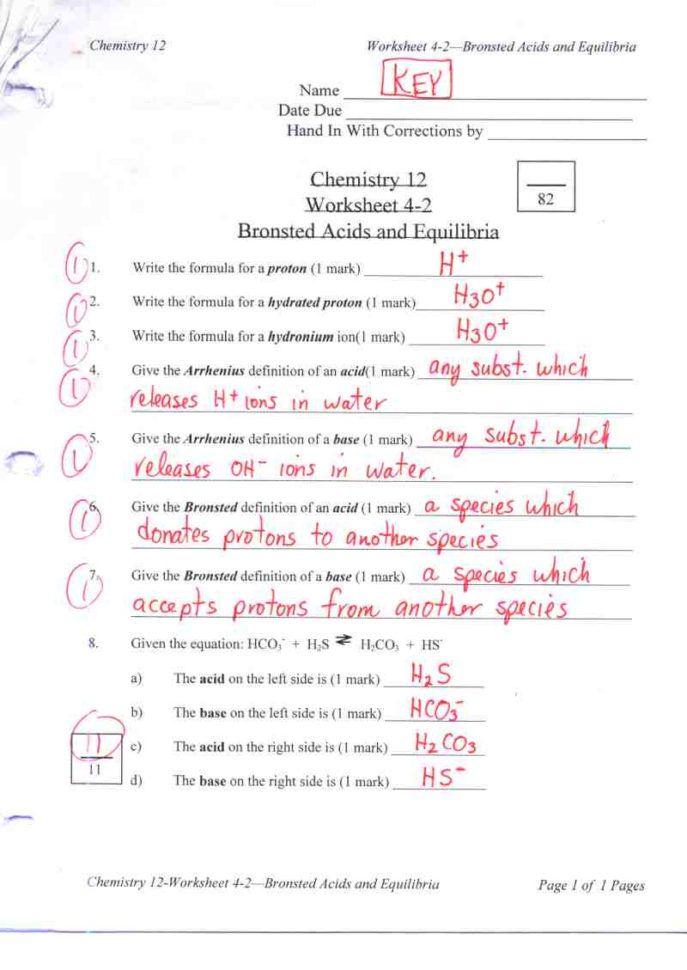 Chemistry 12 Worksheet 4-2—Bronsted Acids and Equilibria
Name KEY
Date Due
Hand In With Corrections by
Chemistry 12
Worksheet 4-2
82
Bronsted Acids and Equilibria
① 1. Write the formula for a proton (1 mark) H⁺
① 2. Write the formula for a hydrated proton (1 mark) H₃O⁺
① 3. Write the formula for a hydronium ion(1 mark) H₃O⁺
① 4. Give the Arrhenius definition of an acid(1 mark) any subst. which
releases H⁺ ions in water
① 5. Give the Arrhenius definition of a base (1 mark) any subst. which
releases OH⁻ ions in water.
① 6. Give the Bronsted definition of an acid (1 mark) a species which
donates protons to another species
① 7. Give the Bronsted definition of a base (1 mark) a species which
accepts protons from another species
8. Given the equation: HCO₃⁻ + H₂S ⇌ H₂CO₃ + HS⁻
a) The acid on the left side is (1 mark) H₂S
b) The base on the left side is (1 mark) HCO₃⁻
11 c) The acid on the right side is (1 mark) H₂CO₃
11 d) The base on the right side is (1 mark) HS⁻
Chemistry 12-Worksheet 4-2—Bronsted Acids and Equilibria Page 1 of 1 Pages